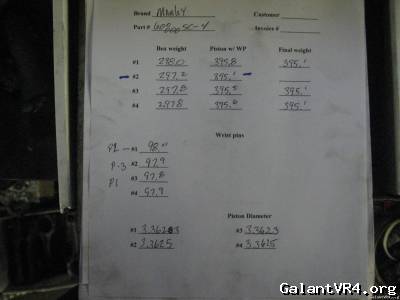 Brand Manley Customer
Part # 605000SC-4 Invoice #
Box weight Piston w/ WP Final weight
#1 298.0 395.8 395.1
#2 297.2 395.1
#3 297.8 395.5 395.1
#4 297.8 395.6 395.1
Wrist pins
P2 - #1 98.0
P-3 #2 97.9
P1 #3 97.8
#4 97.9
Piston Diameter
#1 3.3623 #3 3.3623
#2 3.3625 #4 3.3625
GalantVR4.org